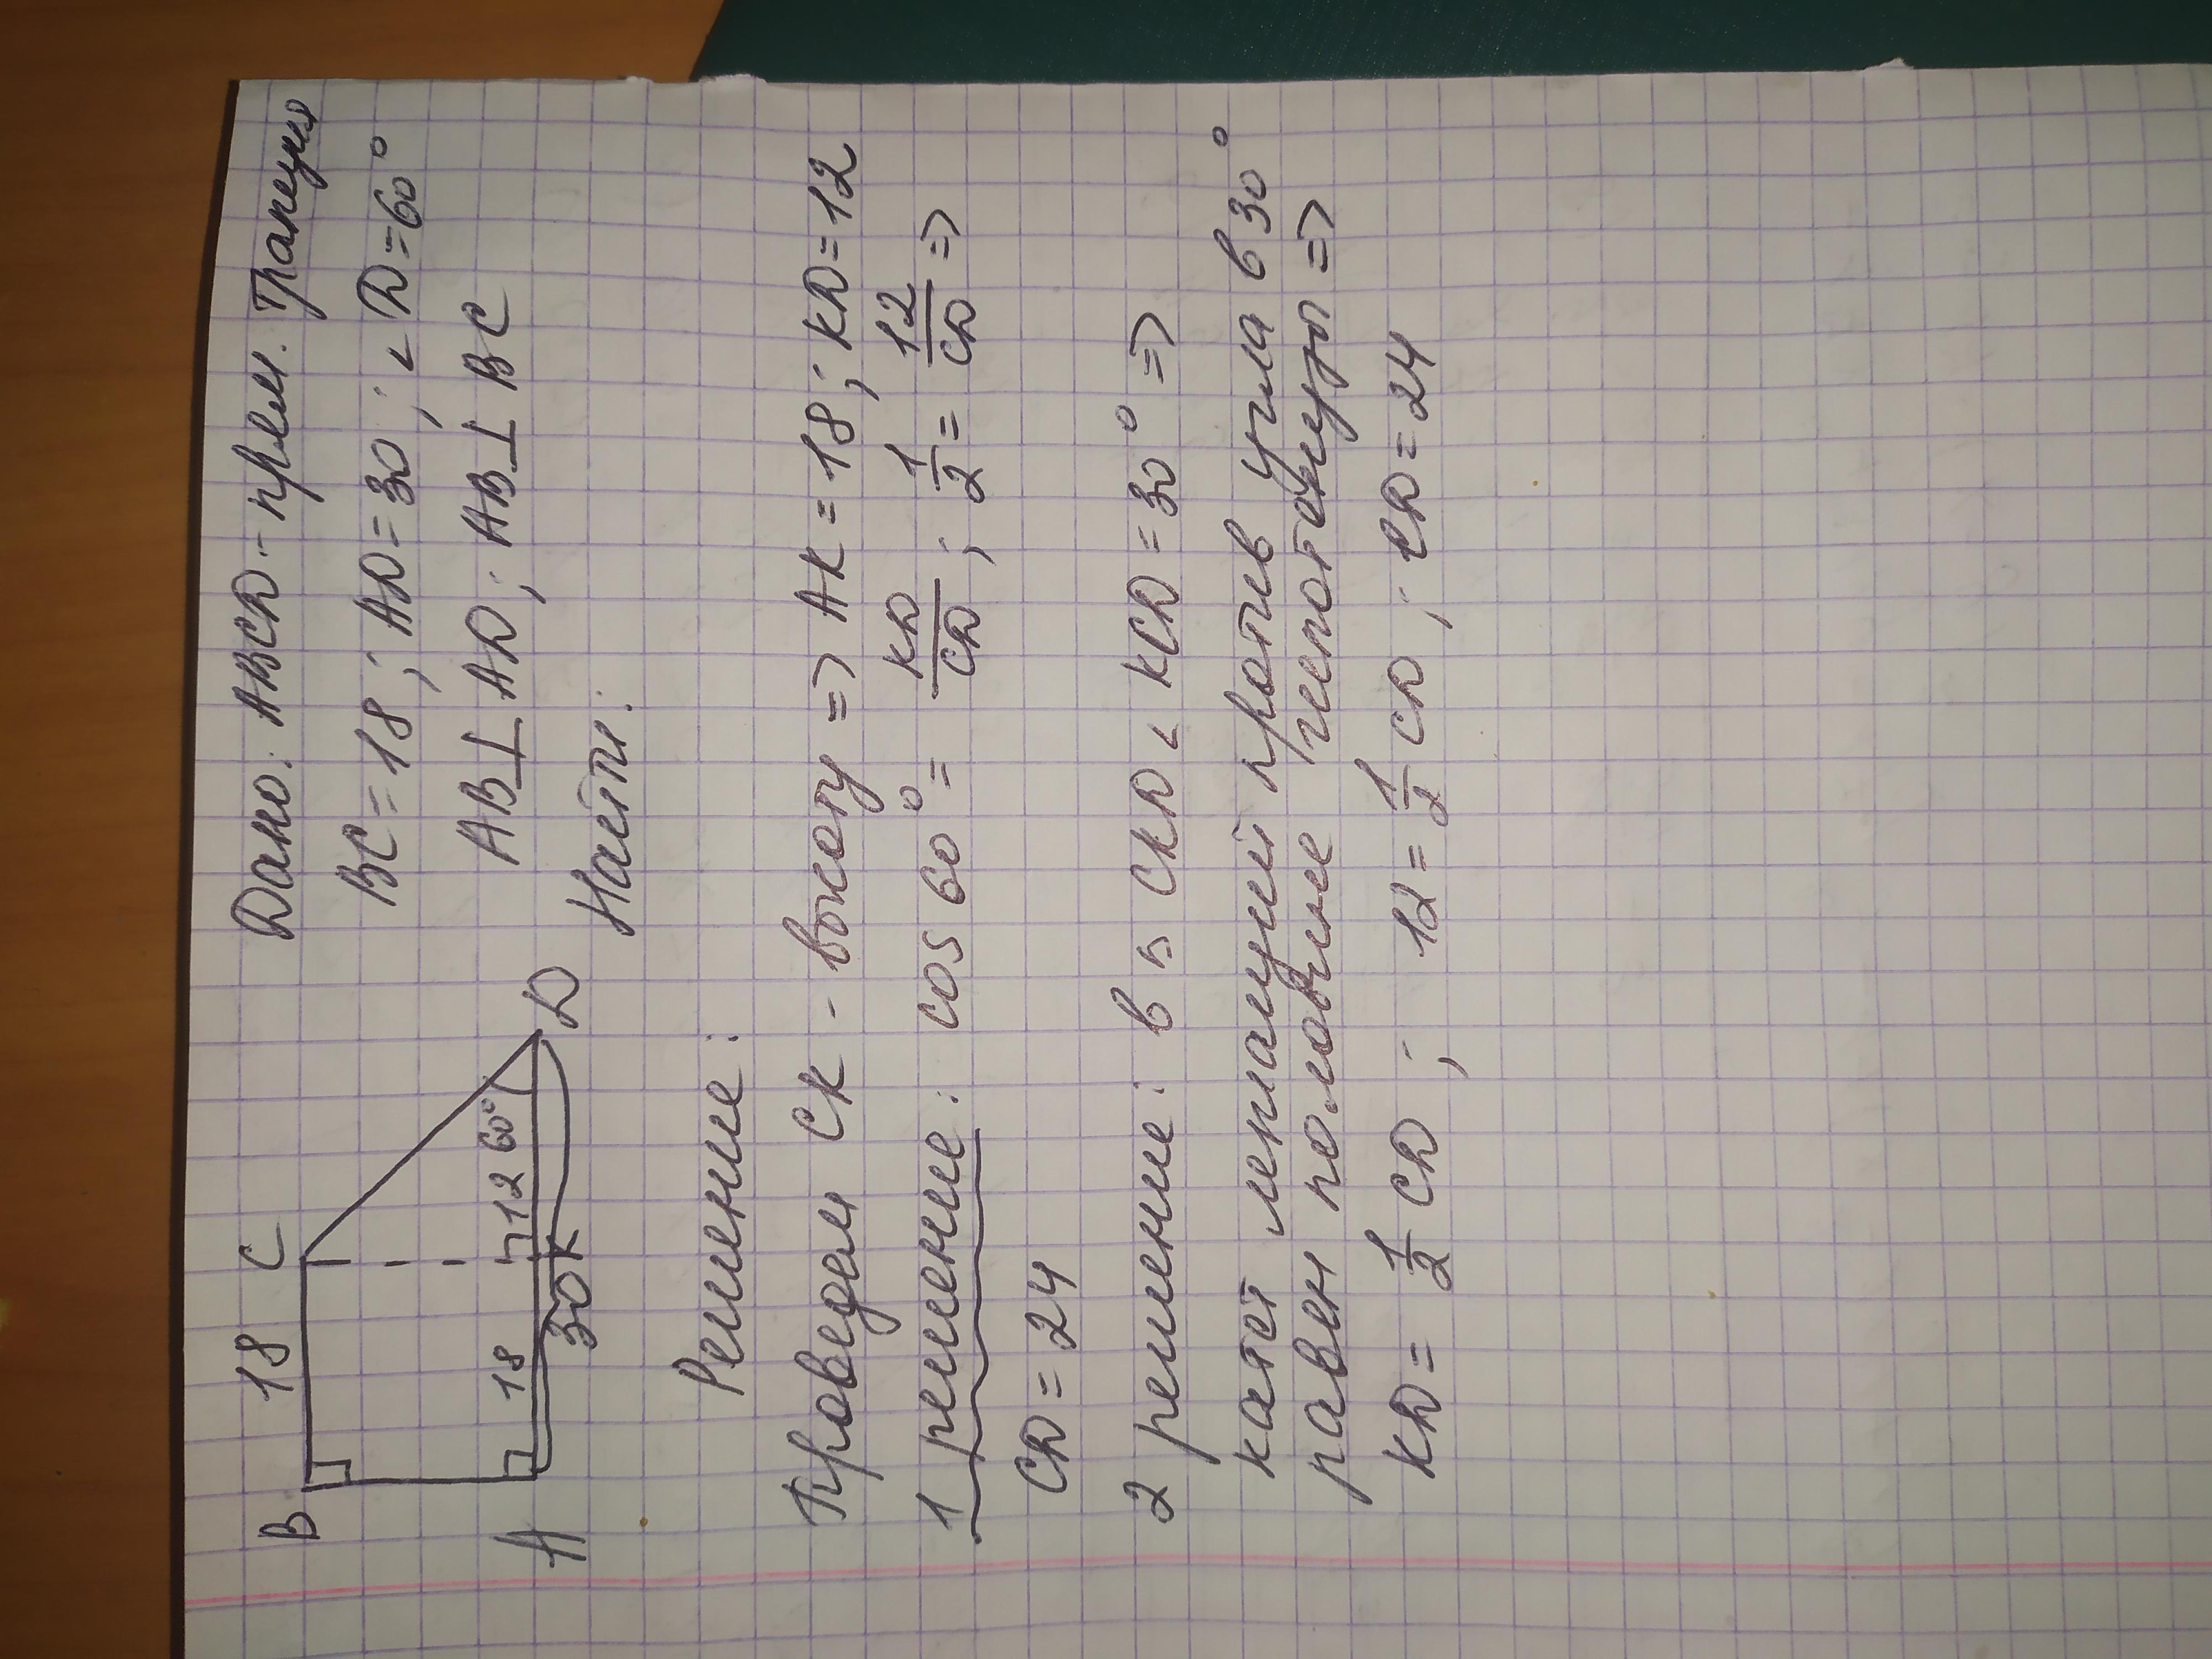 Дано: ABCD - прям. Трапеция
BC = 18; AD = 30; ∠D = 60°
AB ⊥ AD; AB ⊥ BC
Найти:
B 18 C
18 12 60°
A 30 K D
Решение:
Проведем CK - высоту => AK = 18; KD = 12
1 решение: cos 60° = KD/CD; 1/2 = 12/CD =>
CD = 24
2 решение: в ⊿ CKD ∠ KCD = 30° =>
катет лежащий против угла в 30°
равен половине гипотенузы =>
KD = 1/2 CD; 12 = 1/2 CD; CD = 24